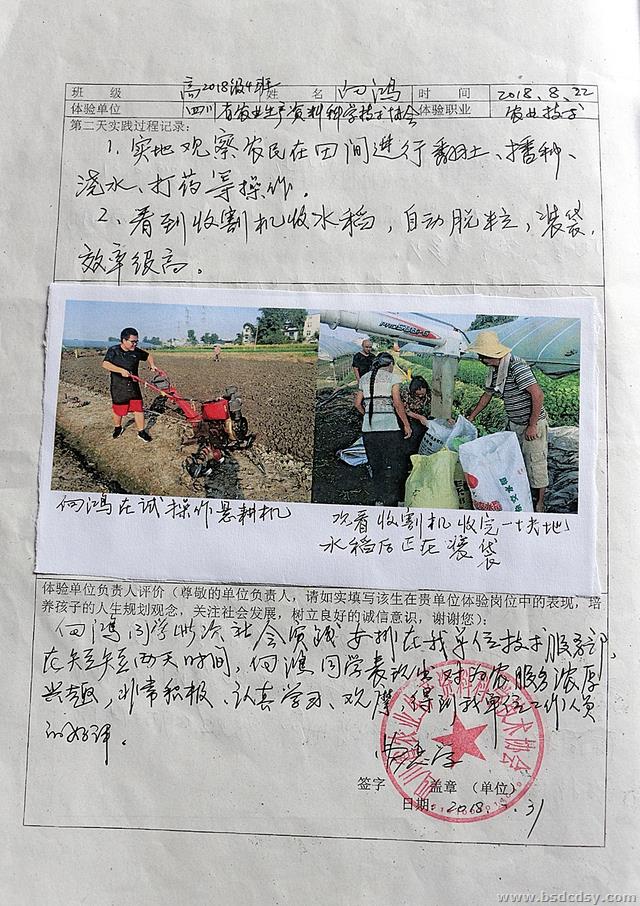 班 级 高2018级4班 姓 名 向鸿 时 间 2018.8.22
体验单位 四川省农业生产资料科学技术协会 体验职业 农业技术
第二天实践过程记录:
1. 实地观察农民在田间进行翻土、播种、
浇水、打药等操作。
2、看到收割机收水稻，自动脱粒，装袋，
效率级高。
向鸿在试操作悬耕机
观看收割机收完一块地
水稻后正在装袋
体验单位负责人评价（尊敬的单位负责人，请如实填写该生在贵单位体验岗位中的表现，培
养孩子的人生规划观念，关注社会发展，树立良好的诚信意识，谢谢您）：
向鸿同学此次社会实践安排在我单位技术服务部，
在短短两天时间，向鸿同学表现出对为农服务浓厚
兴趣，非常积极、认真学习、观摩，得到我单位工作人员
的好评。
签字 盖章 （单位）
日期：2018.8.31
www.bsdcdsy.com